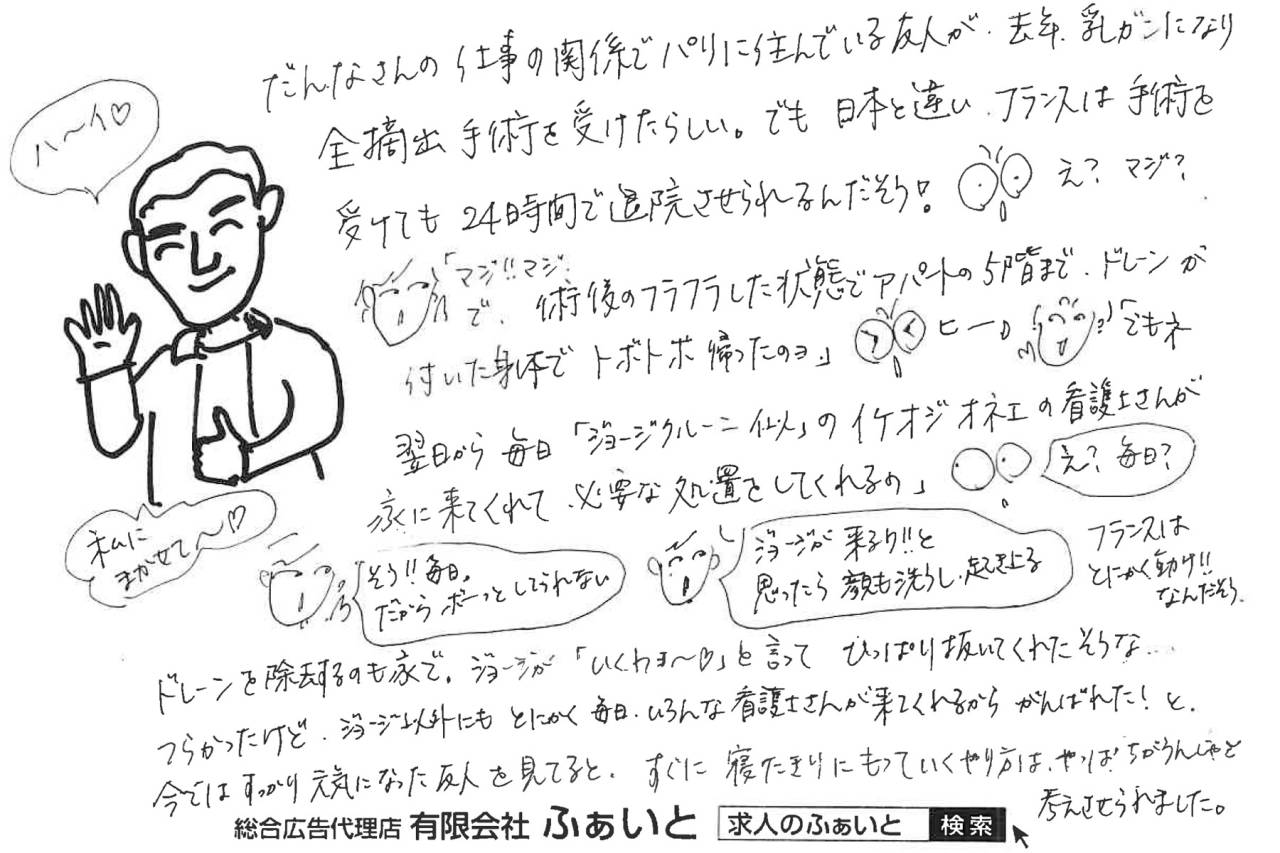 だんなさんの仕事の関係でパリに住んでいる友人が、去年、乳ガンになり
ハ〜イ♡
全摘出手術を受けたらしい。でも日本と違い、フランスは手術を
受けても24時間で退院させられるんだそう! え?マジ?
「マジ!!マジ
で、術後のフラフラした状態でアパートの5階まで、ドレーンが
付いた身体でトボトボ帰ったのヨ」 ヒー 「でもネ
翌日から毎日「ジョージクルーニ似」のイケオジオネエの看護士さんが
家に来てくれて、必要な処置をしてくれるの」 え?毎日?
私に
まかせて〜♡
そう!!毎日。
だからボーっとしてられない
ジョージが来るり!!と
思ったら顔も洗うし、起き上る
フランスは
とにかく動け!!
なんだそう。
ドレーンを除去するのも家で。ジョージが「いくわヨ〜♡」と言って ひっぱり抜いてくれたそうな...
つらかったけど、ジョージ以外にもとにかく毎日、いろんな看護士さんが来てくれるからがんばれた!と、
今ではすっかり元気になった友人を見てると、すぐに寝たきりにもっていくやり方は、やっぱちがうんじゃと
考えさせられました。
総合広告代理店 有限会社 ふぁいと 求人のふぁいと 検索